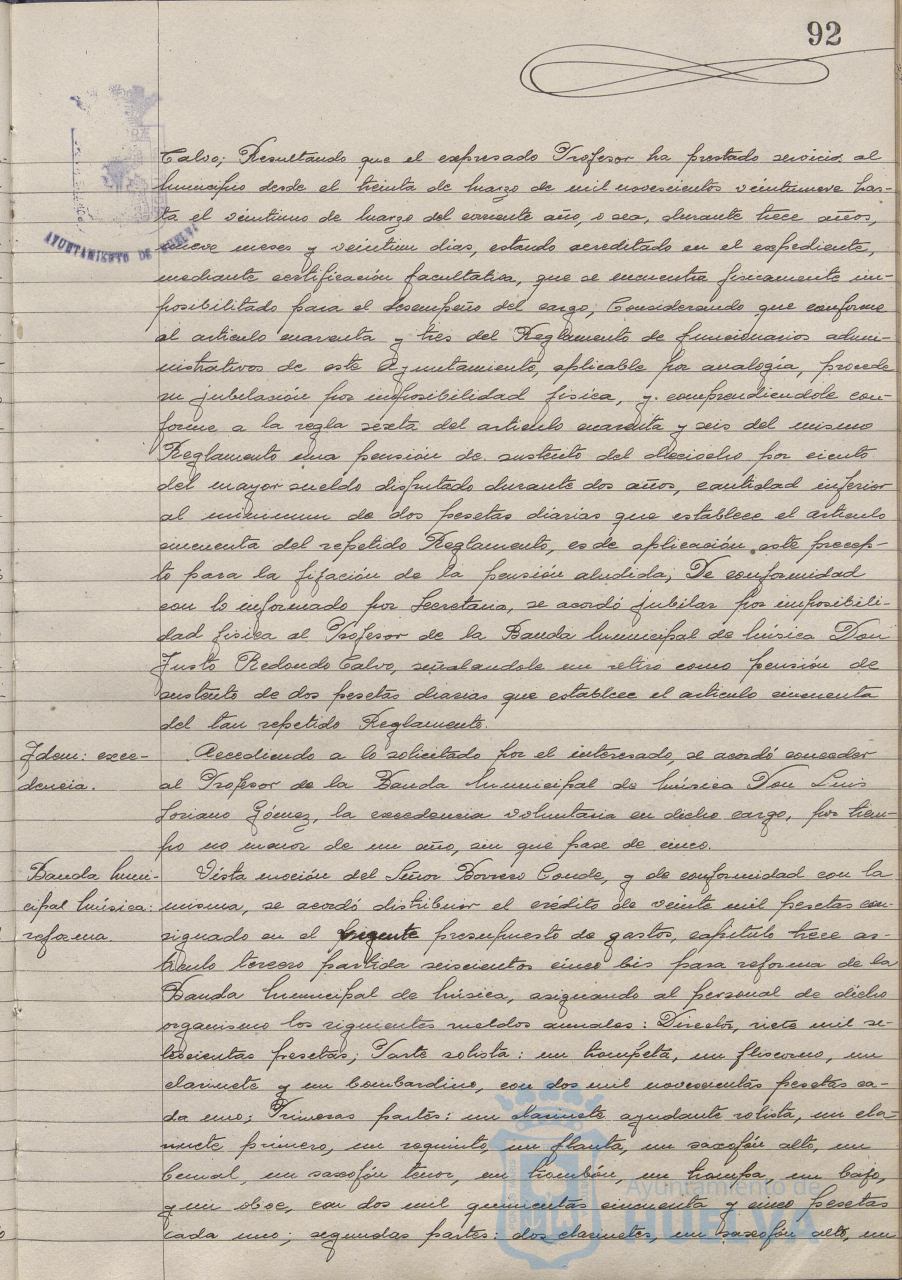 92
AYUNTAMIENTO DE HUELVA
Calvo; Resultando que el expresado Profesor ha prestado servicio al
Municipio desde el treinta de Marzo de mil novescientos veintinueve has-
ta el veintiuno de Marzo del corriente año, o sea, durante trece años,
nueve meses y veintiun dias, estando acreditado en el expediente,
mediante certificación facultativa, que se encuentra fisicamente im-
posibilitado para el desempeño del cargo; Considerando que conforme
al articulo cuarenta y tres del Reglamento de funcionarios admi-
nistrativos de este Ayuntamiento, aplicable por analogía, procede
su jubilasión por imposibilidad física, y comprendiendole con-
forme a la regla sexta del articulo cuarenta y seis del mismo
Reglamento una pensión de sustento del dieciocho por ciento
del mayor sueldo disfrutado durante dos años, cantidad inferior
al minimum de dos pesetas diarias que establece el articulo
cincuenta del repetido Reglamento, es de aplicasión este precep-
to para la fijación de la pensión aludida; De conformidad
con lo informado por Secretaria, se acordó jubilar por imposibili-
dad fisica al Profesor de la Banda Municipal de Música Don
Justo Redondo Calvo, señalandole un retiro como pensión de
sustento de dos pesetas diarias que establece el articulo cincuenta
del tan repetido Reglamento.
Idem: exce-
dencia.
Accediendo a lo solicitado por el interesado, se acordó conceder
al Profesor de la Banda Municipal de Música Don Luis
Soriano Gómez, la excedencia voluntaria en dicho cargo, por tiem-
po no menor de un año, sin que pase de cinco.
Banda Muni-
cipal Música:
reforma
Vista moción del Señor Borrero Conde, y de conformidad con la
misma, se acordó distribuir el crédito de veinte mil pesetas con-
signado en el vigente presupuesto de gastos, capitulo trece ar-
ticulo tercero partida seiscientos cinco bis para reforma de la
Banda Municipal de Música, asignando al personal de dicho
organismo los siguientes sueldos anuales: Director, siete mil se-
tescientas pesetas; Parte solista: un trompeta, un fliscorno, un
clarinete y un bombardino, con dos mil novescientas pesetas ca-
da uno; Primeras partes: un clarinete ayudante solista, un cla-
rinete primero, un requinto, un flauta, un saxofón alto, un
saxofón tenor, un trombón, un trompa, un bajo,
y un oboe, con dos mil quinientas cincuenta y cinco pesetas
cada uno; segundas partes: dos clarinetes, un saxofón alto, un
Ayuntamiento de
HUELVA